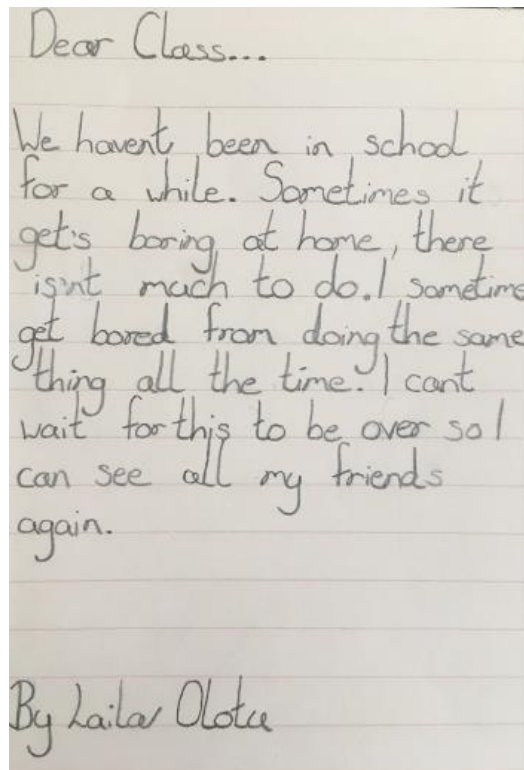 Dear Class...
We havent been in school
for a while. Sometimes it
get's boring at home, there
is'nt much to do. I sometime
get bored from doing the same
thing all the time. I cant
wait for this to be over so I
can see all my friends
again.
By Laila Olotu